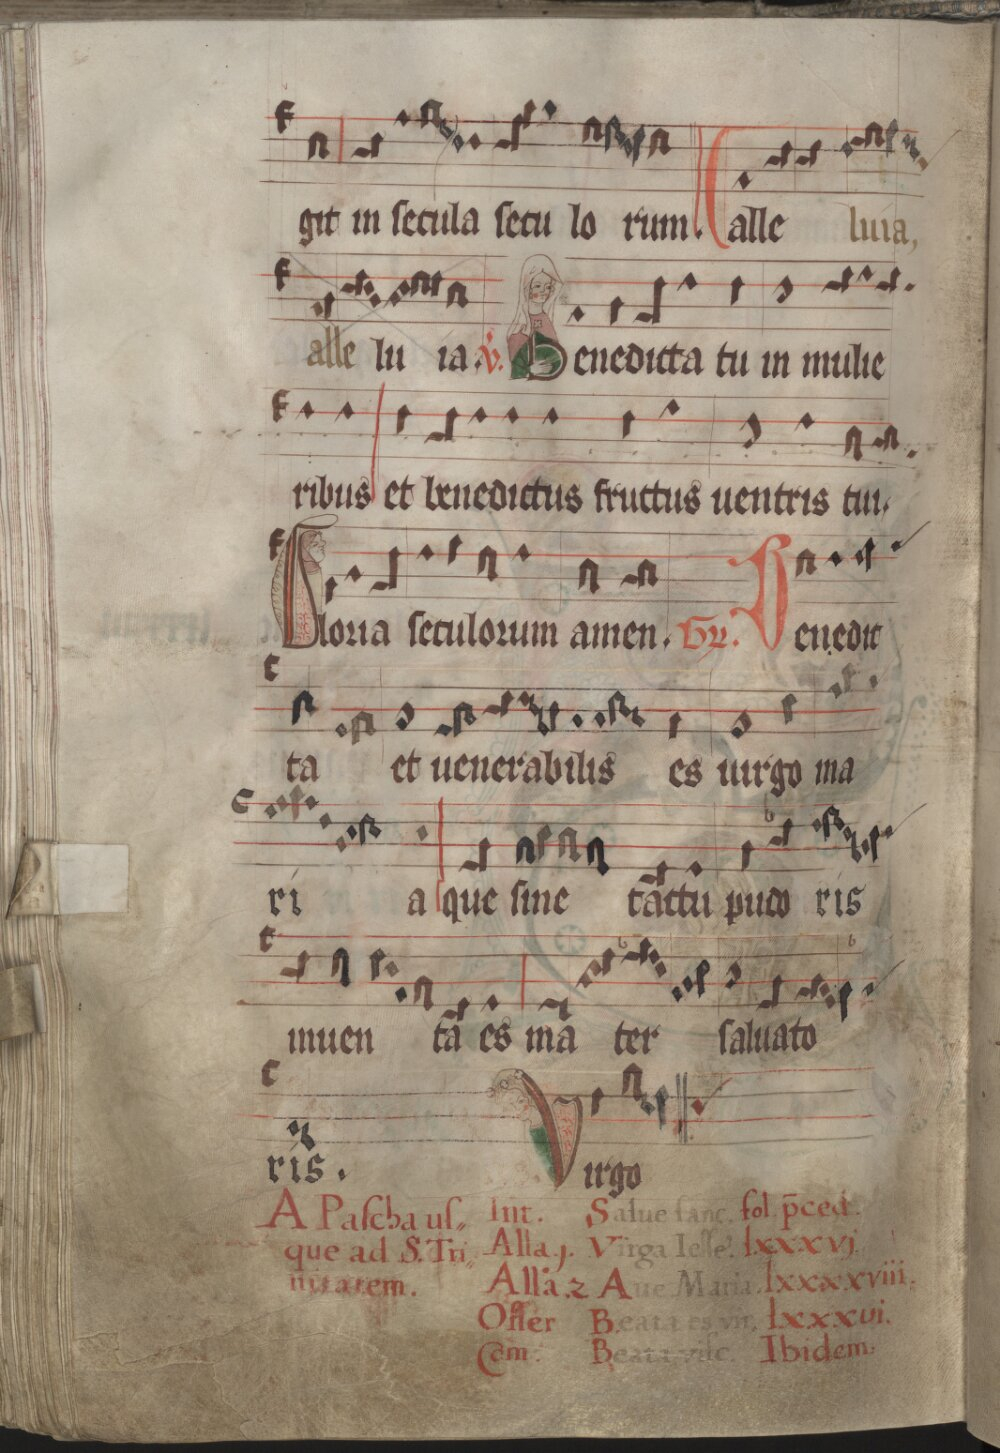 git in secula secu lo rum. alle luia,
alle lu ia. v. Benedicta tu in mulie
ribus et benedictus fructus uentris tui.
Gloria seculorum amen. Gr. Benedic
ta et uenerabilis es uirgo ma
ri a que sine tactu pudo ris
inuen ta es ma ter saluato
ris. Virgo
A Pascha us„ Int. Salue sanc. fol. p̄ced.
que ad S. Tri„ Alla. j. Virga Iesse. lxxxvj
nitatem. Alla. 2 Aue Maria. lxxxxviii.
Offer Beata es vir. lxxxvi.
Com. Beata visc. Ibidem.